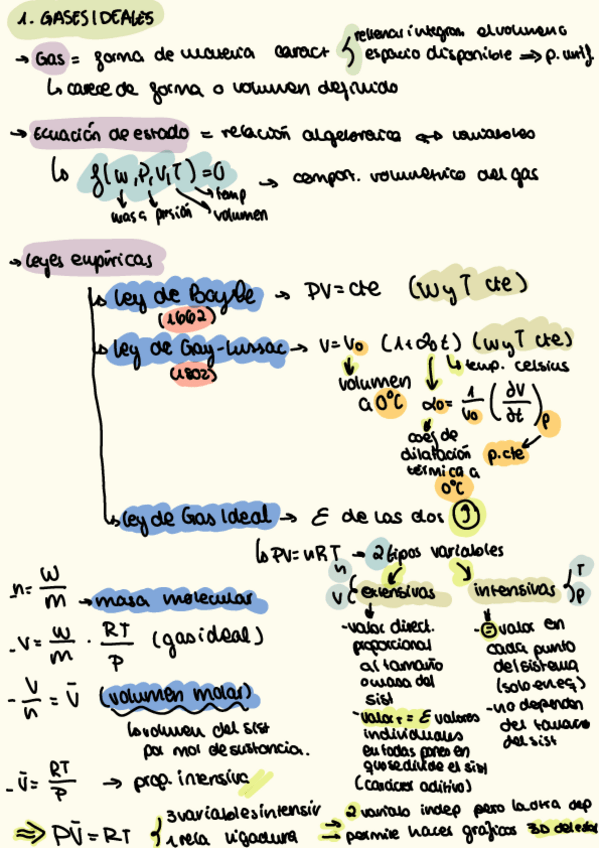 1. GASES IDEALES
→ Gas = forma de materia caract { rellenar íntegram. el volumen o
espacio disponible ⇒ p. unif.
↳ carece de forma o volumen definido
→ Ecuación de estado = relación algebraica ↔ variables
↳ f(w, P, V, T) = 0 → comport. volumétrico del gas
masa presión volumen temp
→ Leyes empíricas
↳ Ley de Boyle → PV = cte (W y T cte)
(1662)
↳ Ley de Gay-Lussac → V = V₀ (1+α₀t) (W y T cte)
(1802)
↳ temp. celsius
volumen
a 0°C α₀ = 1/V₀ (∂V/∂t)p
coef de
dilatación p. cte
térmica a
0°C
↳ Ley de Gas Ideal → Σ de las dos
↳ PV = nRT → 2 tipos variables
n = W/m → masa molecular
- V = W/m · RT/P (gas ideal)
- V/n = V̄ (volumen molar)
↳ volumen del sist
por mol de sustancia.
- V̄ = RT/P → prop. intensiva
n
V { extensivas
- valor direct.
proporcional
al tamaño
o masa del
sist
- valor T = Σ valores
individuales
en todas partes en
que se divide el sist
(carácter aditivo)
intensivas { T
P
- = valor en
cada punto
del sistema
(solo en eq)
- no dependen
del tamaño
del sist
⇒ PV̄ = RT { 3 variables intensiv
1 rela ligadura
→ 2 variabls indep pero la otra dep
→ permite hacer gráficos 3D del estado